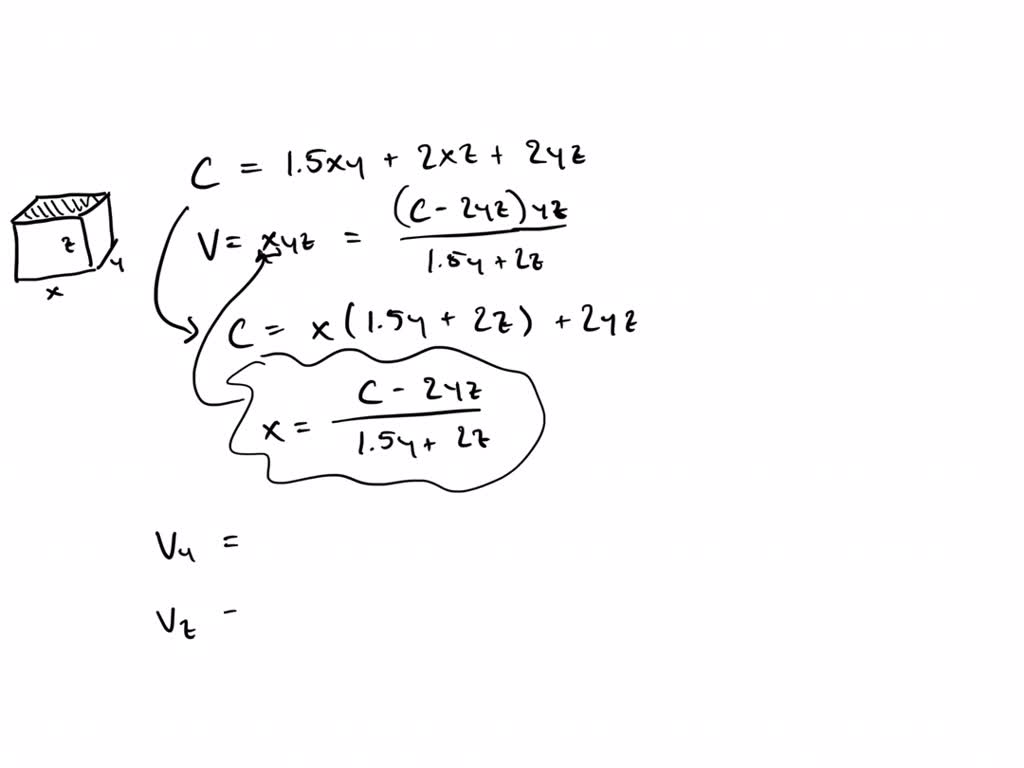 C = 1.5xy + 2xz + 2yz
V = xyz = (C - 2yz)yz / 1.5y + 2z
z
y
x
C = x(1.5y + 2z) + 2yz
x = C - 2yz / 1.5y + 2z
Vy =
Vz -